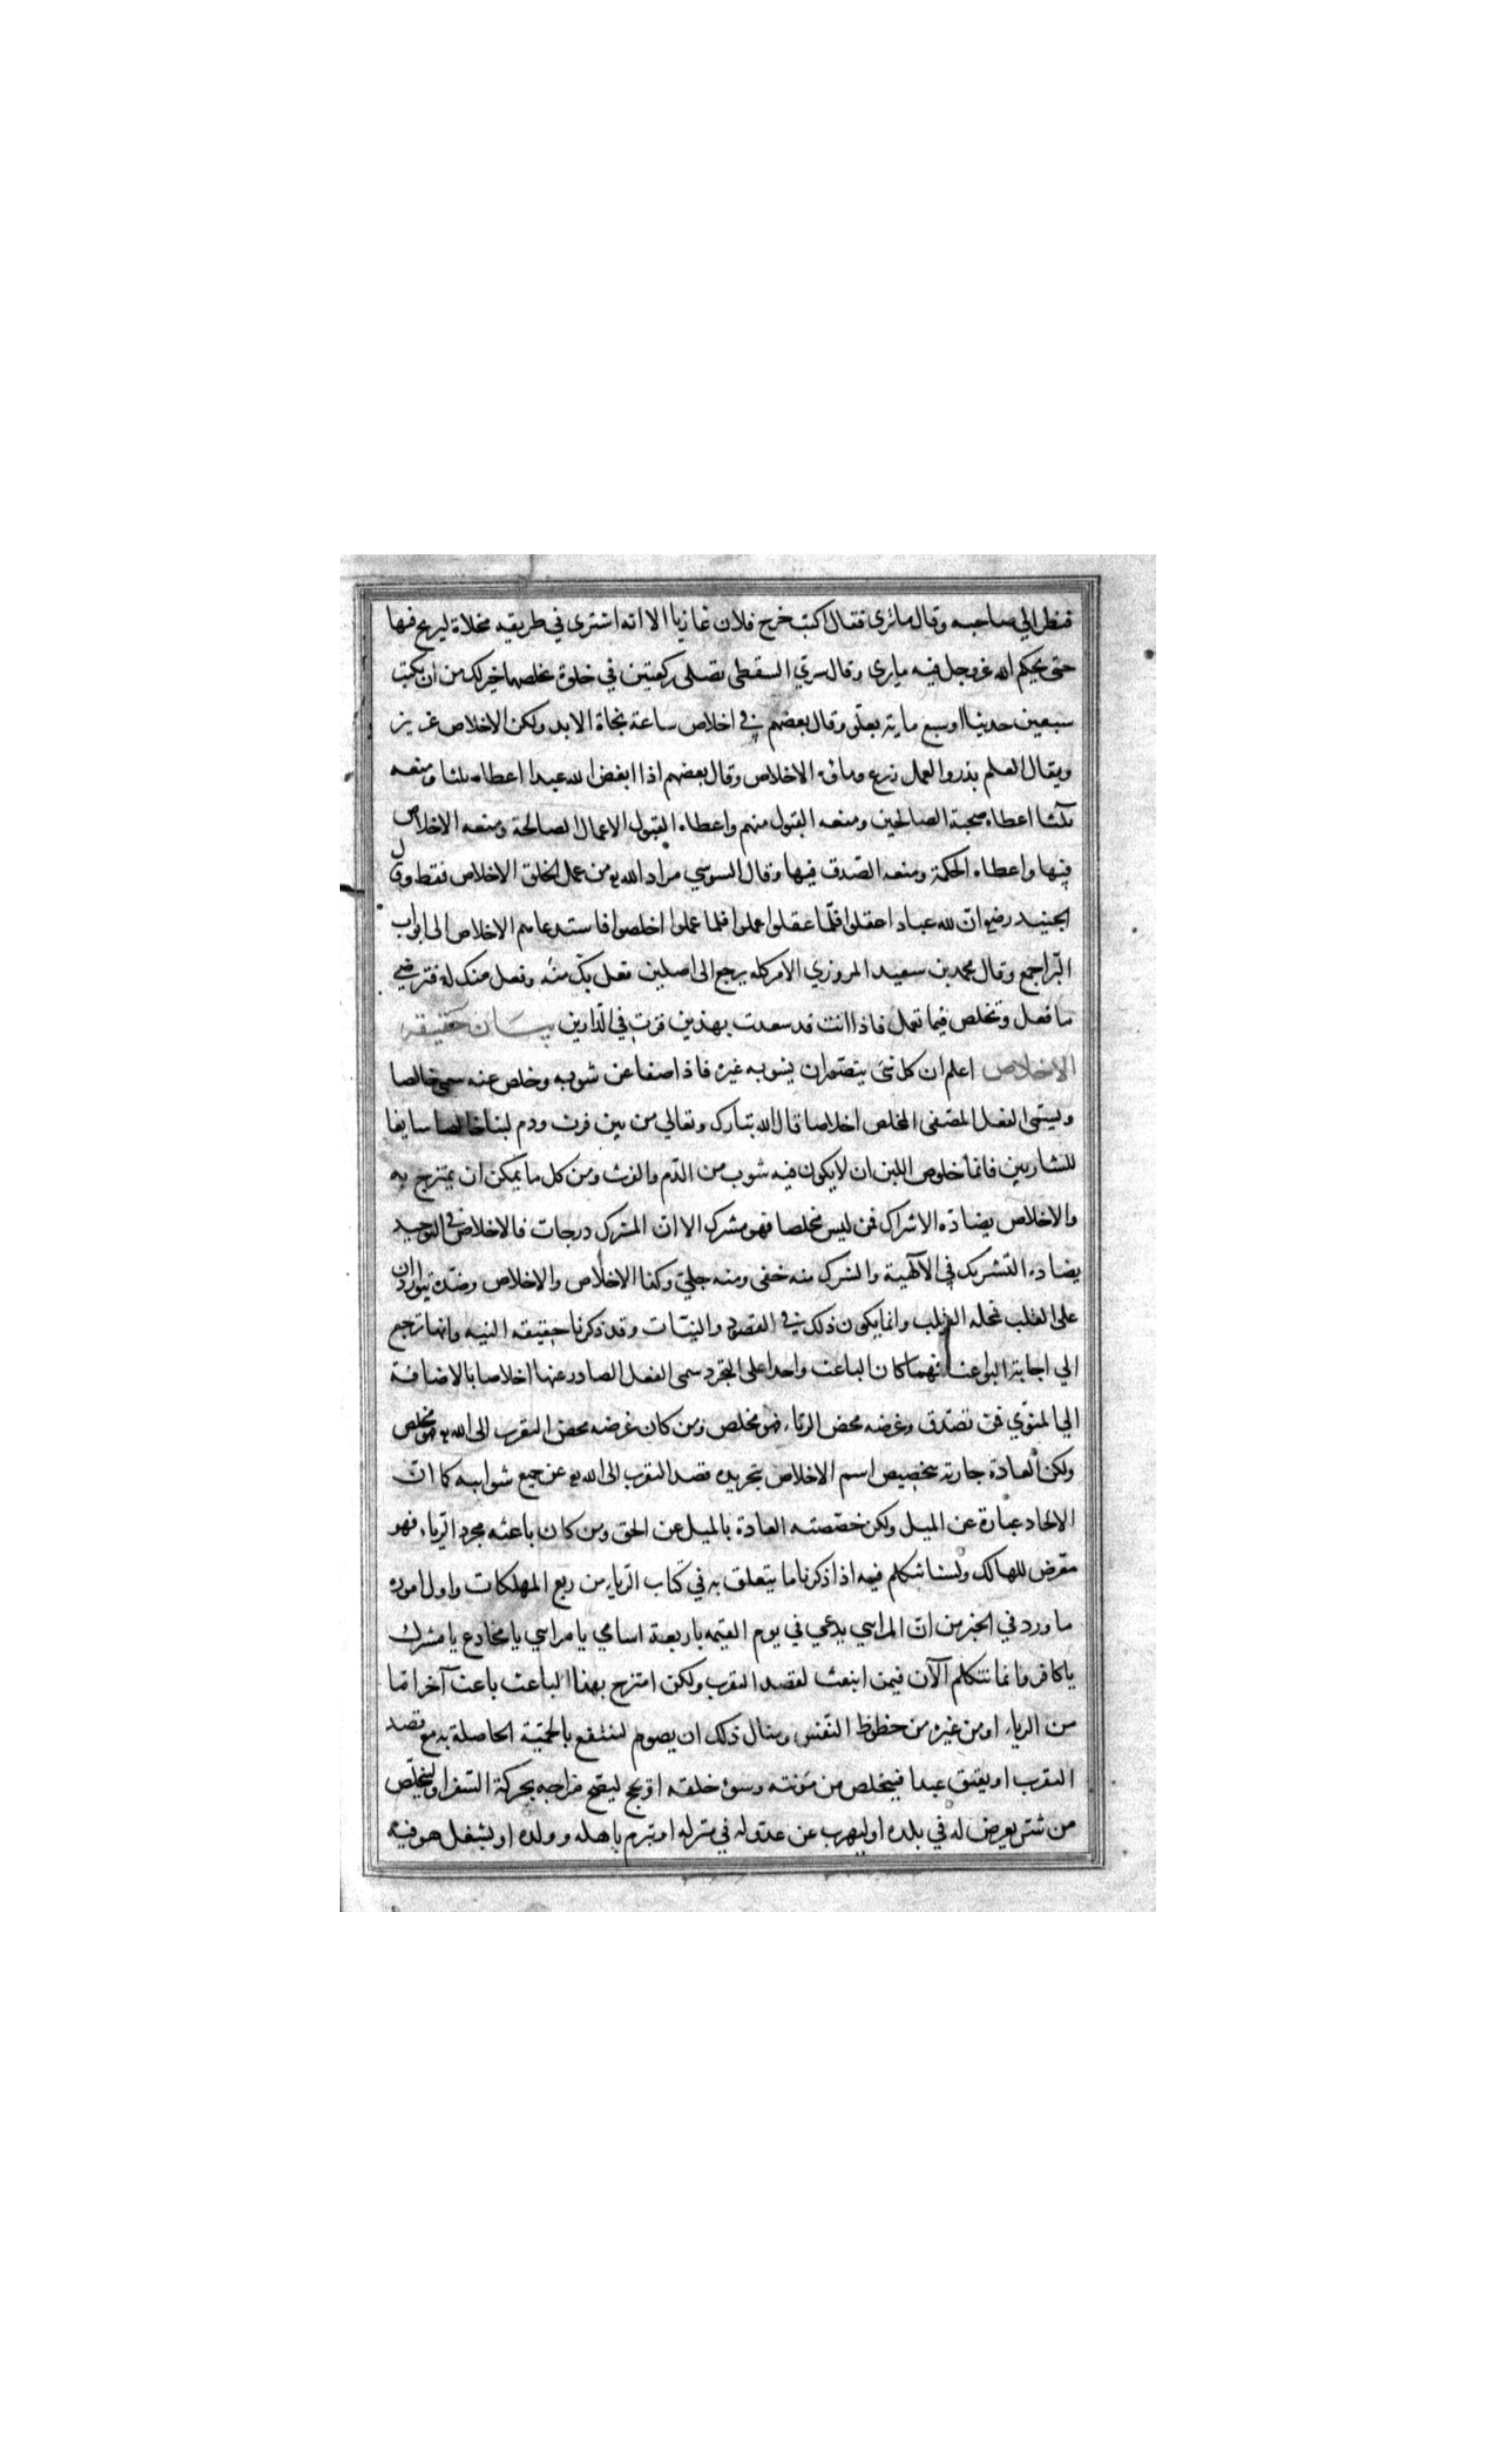 فنظر الي صاحبه وقال ما ترى فقال اكتب خرج فلان غازيا الا انه اشترى في طريقه مخلاة ليربح فيها
حتى يحكم الله عزوجل فيه ما يرى وقال سري السقطى تصلى ركعتين في خلوة تخلصهما خير لك من ان تكتب
سبعين حديثا او سبع ماية بعلو وقال بعضهم في اخلاص ساعة نجاة الابد ولكن الاخلاص عزيز
ويقال العلم بذر والعمل زرع وماؤه الاخلاص وقال بعضهم اذا ابغض الله عبدا اعطاه ثلثا ومنعه
ثلثا اعطاه صحبة الصالحين ومنعه القبول منهم واعطاه القبول الاعمال الصالحة ومنعه الاخلاص
فيها واعطاه الحكمة ومنعه الصدق فيها وقال السوسي مراد الله تع من عمل الخلق الاخلاص فقط وقال
الجنيد رضي ان لله عبادا عقلوا فلما عقلوا عملوا فلما عملوا اخلصوا فاستدعاهم الاخلاص الى ابواب
البر اجمع وقال محمد بن سعيد المروزي الامر كله يرجع الى اصلين فعل بك منه وفعل منك له فترضي
ما فعل وتخلص فيما تعمل فاذا انت قد سعدت بهذين فزت في الدارين بيان حقيقة
الاخلاص اعلم ان كل شئ يتصور ان يشوبه غيره فاذا صفا عن شوبه وخلص عنه سمى خالصا
ويسمى الفعل المصفى المخلص اخلاصا قال الله تبارك وتعالي من بين فرث ودم لبنا خالصا سايغا
للشاربين فانما خلوص اللبن ان لا يكون فيه شوب من الدم والفرث ومن كل ما يمكن ان يمتزج به
والاخلاص يضاده الاشراك فمن ليس مخلصا فهو مشرك الا ان الشرك درجات فالاخلاص في التوحيد
يضاده التشريك في الالهية والشرك منه خفى ومنه جلي وكذا الاخلاص والاخلاص وضده يتواردان
على القلب فمحله القلب وانما يكون ذلك في القصود والنيات وقد ذكرنا حقيقة النيه وانها ترجع
الي اجابة البواعث فمهما كان الباعث واحدا على التجرد سمى الفعل الصادر عنها اخلاصا بالاضافة
الي المنوي فمن تصدق وغرضه محض الرياء فهو مخلص ومن كان غرضه محض التقرب الى الله تع فهو مخلص
ولكن العادة جارية بتخصيص اسم الاخلاص بتجريده قصد التقرب الى الله تع عن جميع شوايبه كما ان
الالحاد عبارة عن الميل ولكن خصصته العادة بالميل عن الحق ومن كان باعثه مجرد الرياء فهو
معرض للهالك ولسنا نتكلم فيه اذا ذكرنا ما يتعلق به في كتاب الرياء من ربع المهلكات واول اموره
ما ورد في الخبر من ان المراسي يدعي في يوم القيمه باربعة اسامي يا مراسي يا مخادع يا مشرك
يا كافر وانما نتكلم الآن فيمن انبعث لقصد التقرب ولكن امتزج بهذا الباعث باعث آخر اما
من الرياء او من غيره من حظوظ النفس ومثال ذلك ان يصوم لينتفع بالحمية الحاصلة به مع قصد
التقرب او يعتق عبدا فيتخلص من مؤنته وسوء خلقه او يحج ليصح مزاجه بحركة السفر او ليتخلص
من شر يعرض له في بلده او ليهرب عن عدو له في منزله او تبرم باهله وولده او بشغل هو فيه